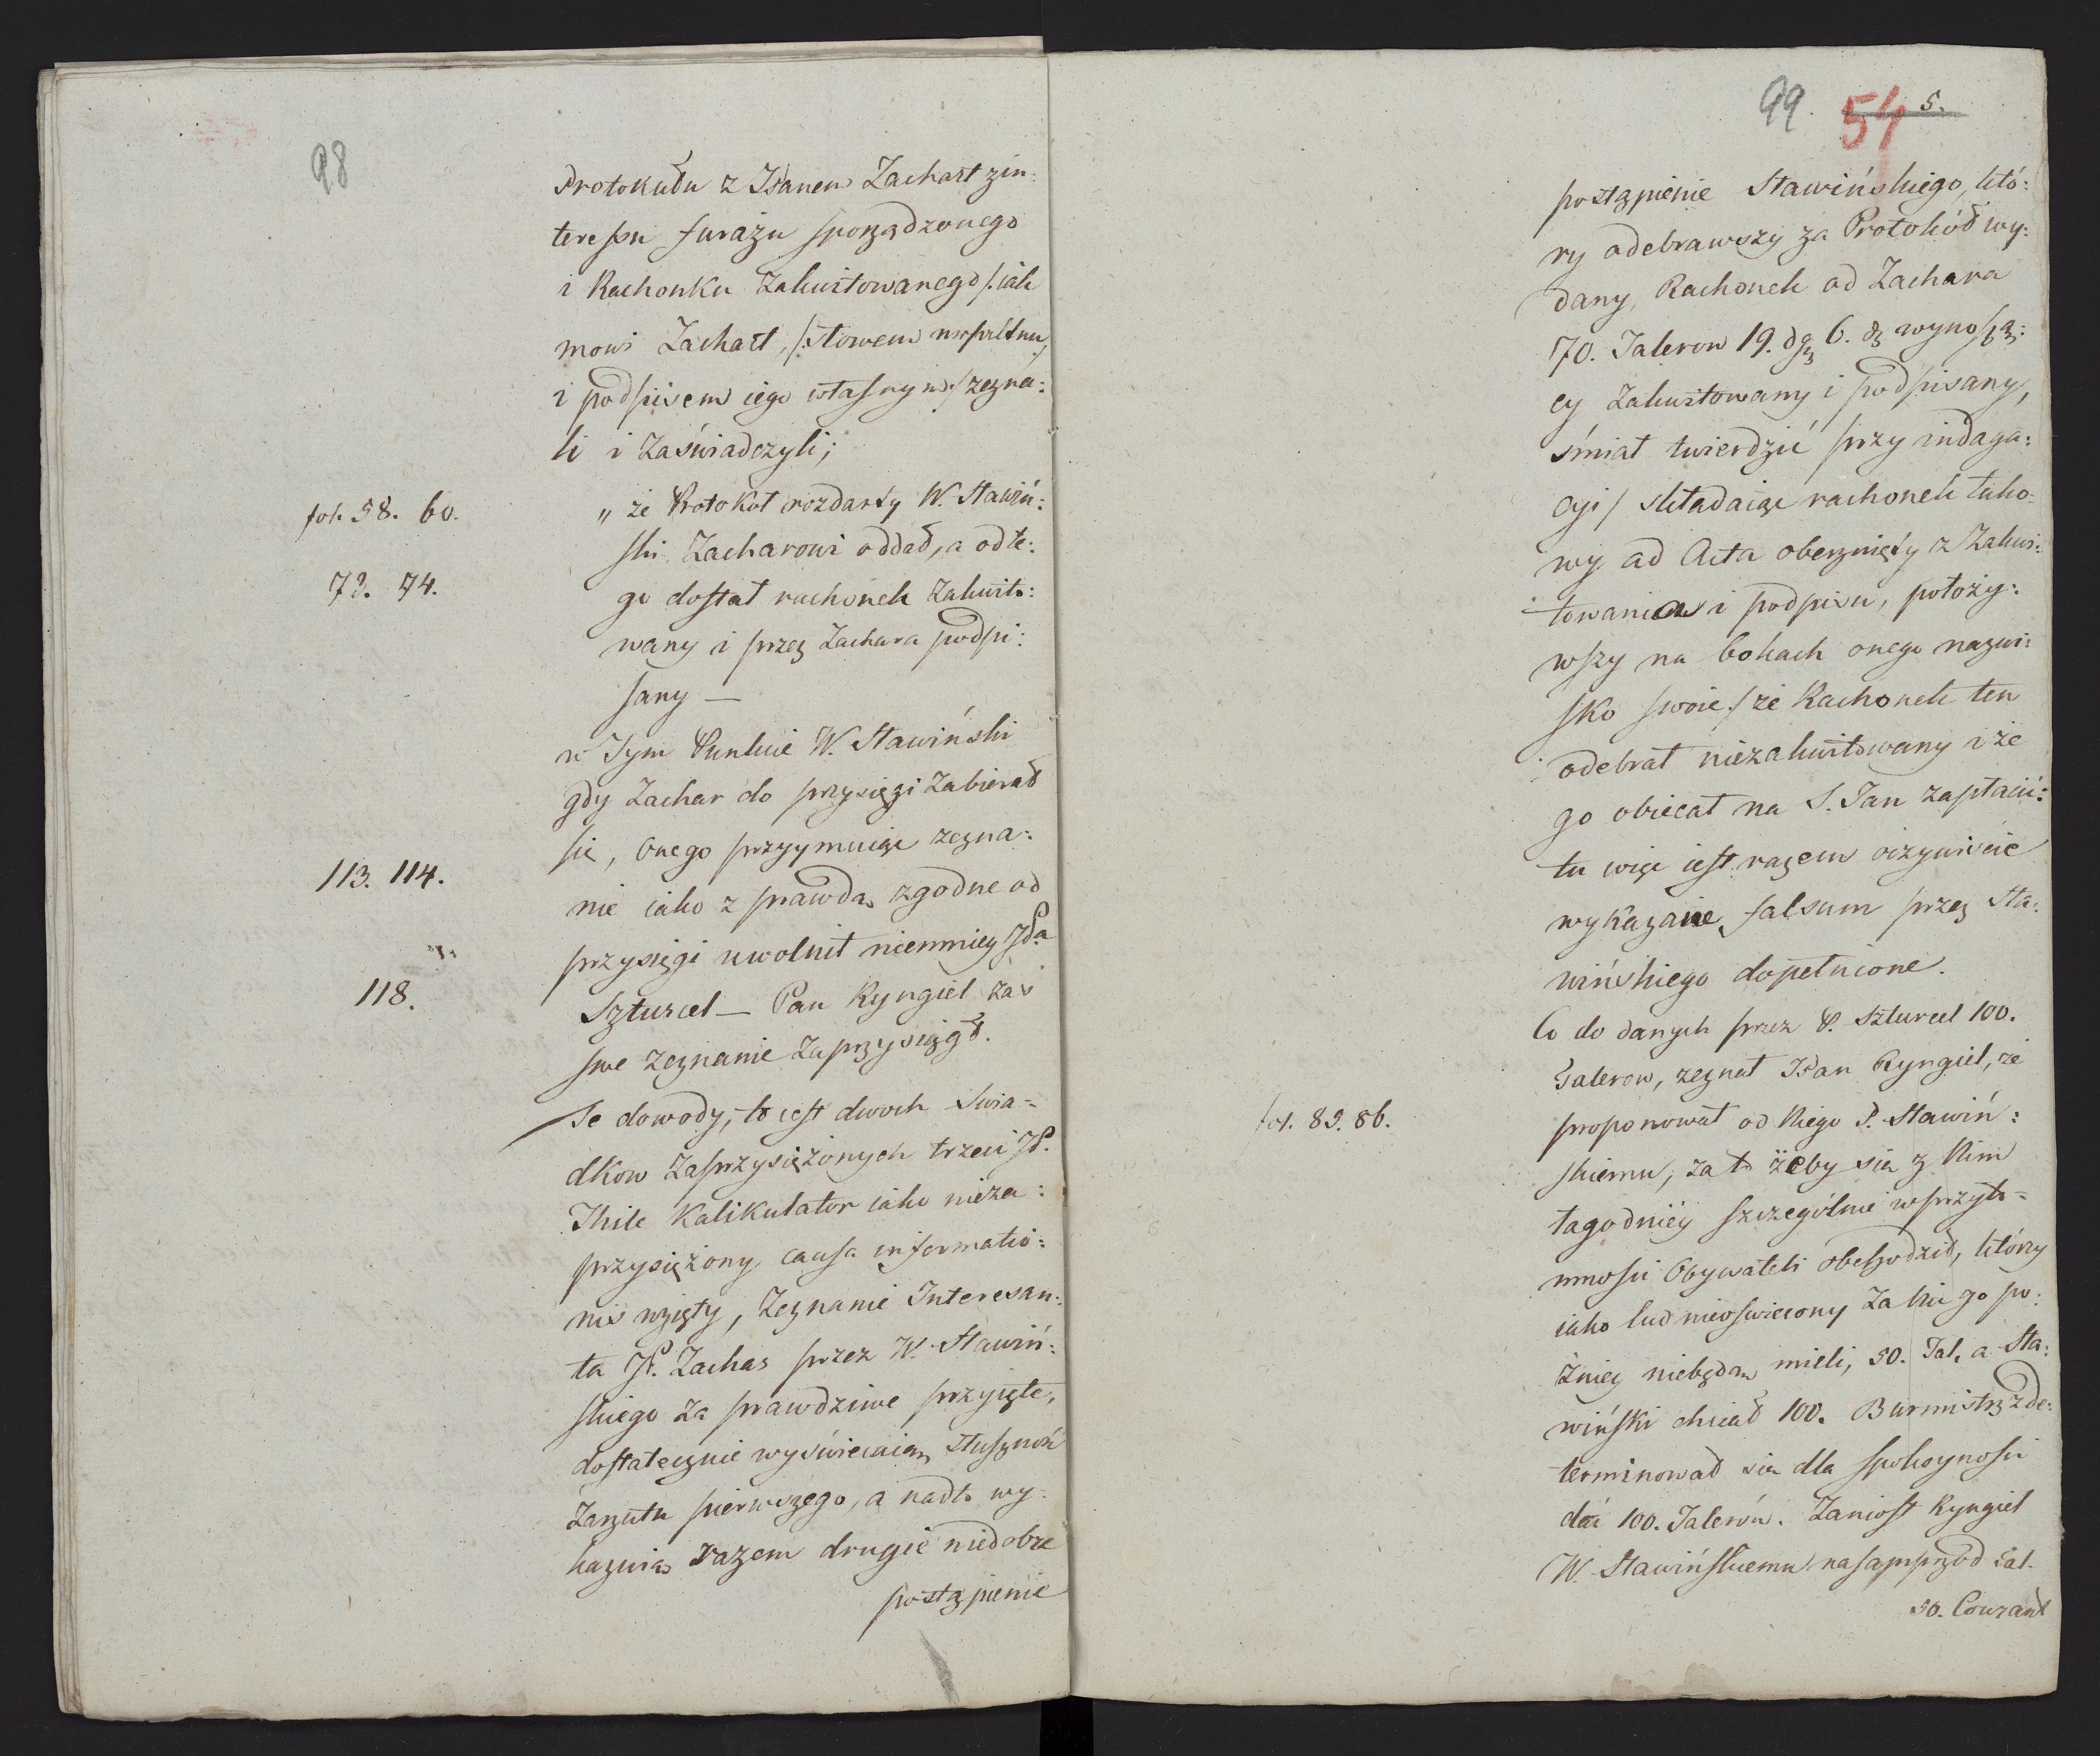 98
Protokułu z JPanem Zachart z in:
teressu furażu sporządzonego
i Rachonku zakwitowanego /:iak
mowi Zachart, /:słowem
i podpisem iego własnym:/ zezna:
li i zaświadczyli;
fol. 58. 60.
„ że Protokoł rozdarty W. Stawiń:
ski Zacharowi oddał, a od te:
72. 74.
go dostał rachonek zakwito:
wany i przez Zachara podpi:
sany —
w Tym Punkcie W. Stawiński
gdy Zachar do przysięgi zabierał
się, Onego przyymuiąc zezna:
113. 114.
nie iako z prawdą zgodne od
przysięgi uwolnił niemniey JPa
118.
Szturcel — Pan Ryngiel zaś
swe zeznanie zaprzysiągł.
Te dowody, to iest dwoch Świa=
dkow zaprzysiężonych trzeci JP.
Thile Kalikulator iako nieza:
przysiężony causa informatio:
nis wzięty, Zeznanie Interesan:
ta JP. Zachar przez W. Stawiń:
skiego za prawdziwe przyięte,
dostatecznie wyświecaią słuszność
Zarzutu pierwszego, a nadto wy:
kazuią razem drugie niedobre
postąpienie
99. 54 5.
postąpienie Stawińskiego, któ:
ry odebrawszy za Protokół wy:
dany, Rachonek od Zachara
70. Talerow 19. dgr 6. d. wynoszą:
cy zakwitowany i podpisany,
śmiał twierdzić przy indaga:
cyi / składaiąc rachonek tako:
wy ad Acta oberznięty z Zakwi:
towania i podpisu, położy:
wszy na bokach onego nazwi:
sko swoie:/ że Rachonek ten
odebrał niezakwitowany i że
go obiecał na S. Jan zapłacić:
tu więc iest razem oczywiście
wykazane falsum przez Sta:
wińskiego dopełnione.
Co do danych przez P. Szturcel 100.
Talerow, zeznał JPan Ryngiel, że
fol. 85. 86.
proponował od Niego P. Stawiń:
skiemu, za to żeby się z Nim
łagodniéy szczególnie w przyto=
mności Obywateli obchodził, którzy
iako lud nieoświecony za nic go po:
źniey niebędą mieli, 50. Tal, a Sta:
wiński chciał 100. Burmistrz zde:
terminował się dla spokoyności
dać 100. Talerów. Zaniosł Ryngiel
W. Stawińskiemu nasamprzod tal.
50. Courant